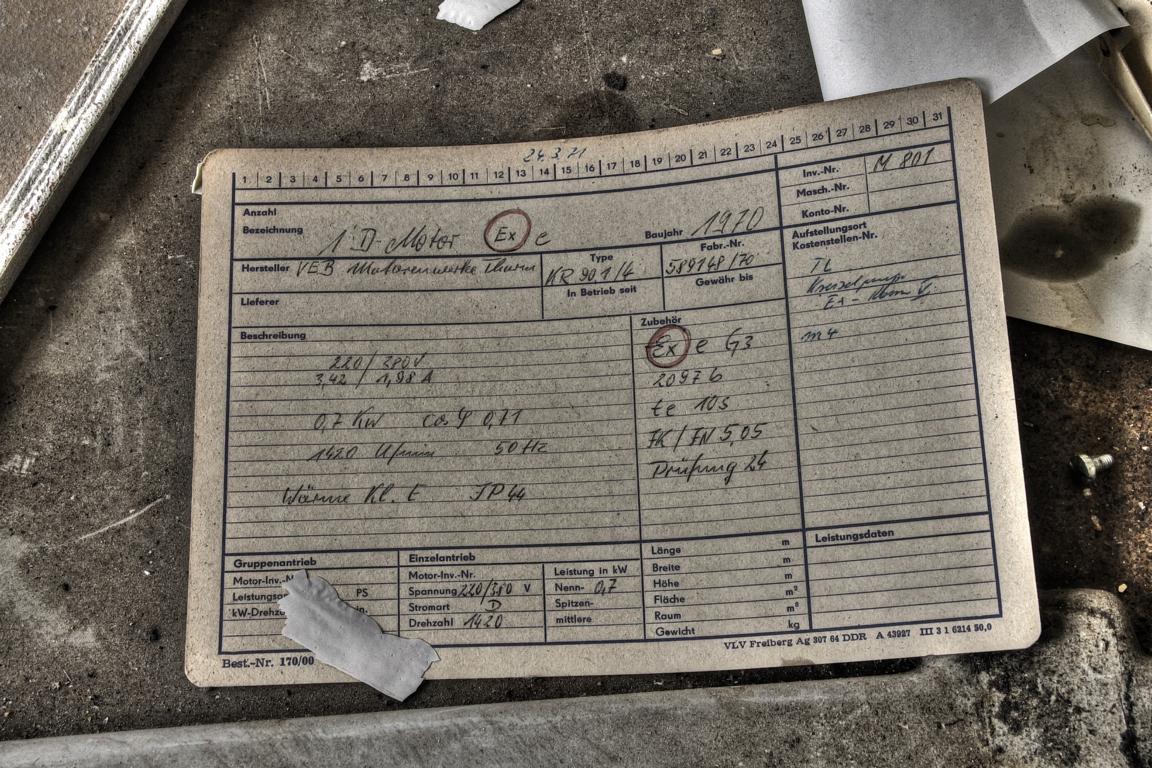 24.3.71
1 2 3 4 5 6 7 8 9 10 11 12 13 14 15 16 17 18 19 20 21 22 23 24 25 26 27 28 29 30 31
Anzahl
Bezeichnung 1 D-Motor Ex e Baujahr 1970
Inv.-Nr. M 801
Masch.-Nr.
Konto-Nr.
Hersteller VEB Motorenwerke Thurm
Type
KR 901/4
Fabr.-Nr.
589148/70
Lieferer
In Betrieb seit
Gewähr bis
Aufstellungsort
Kostenstellen-Nr.
TL
Kreiselpump
m 4
Beschreibung
220/380V
3,42/1,98 A
0,7 KW cos φ 0,71
1420 U/min 50 Hz
Wärme Kl. E JP 44
Zubehör
Ex e G3
2097 b
te 10s
JK/JN 5,05
Prüfung 24
Gruppenantrieb
Motor-Inv.-N
Leistungs PS
kW-Drehz in.
Einzelantrieb
Motor-Inv.-Nr.
Spannung 220/380 V
Stromart D
Drehzahl 1420
Leistung in kW
Nenn- 0,7
Spitzen-
mittlere
Länge m
Breite m
Höhe m
Fläche m²
Raum m³
Gewicht kg
Leistungsdaten
Best.-Nr. 170/00
VLV Freiberg Ag 307 64 DDR A 43927 III 3 1 6214 50,0